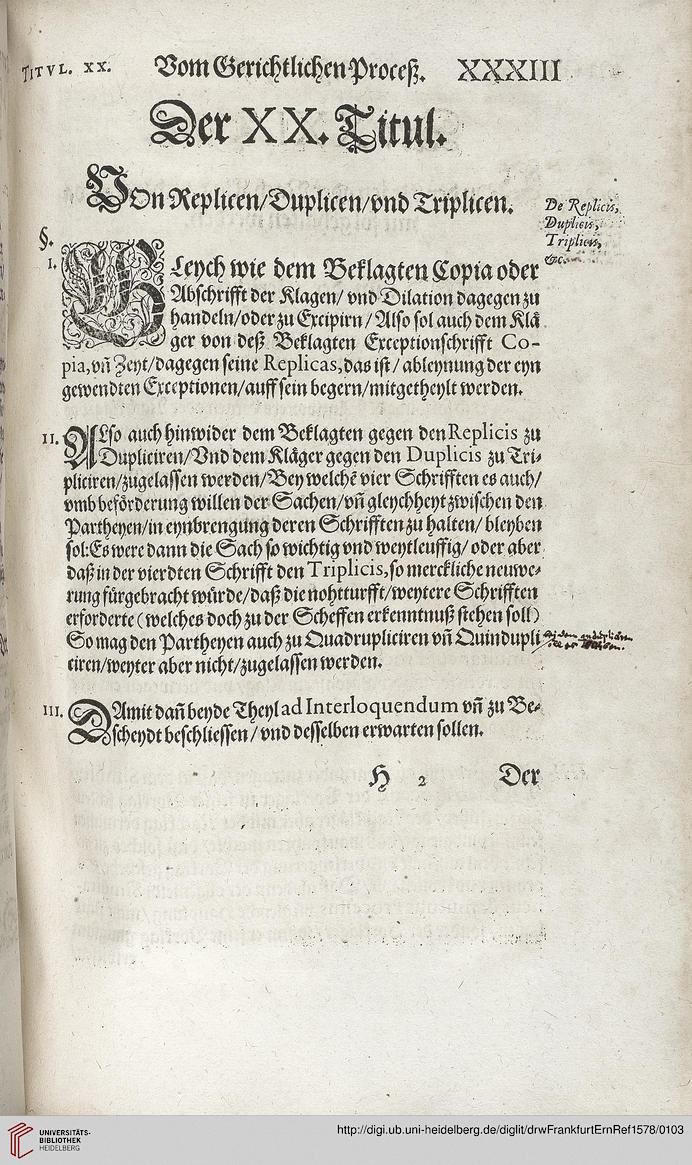 TITVL. XX. Vom Gerichtlichen Proceß. XXXIII
Der XX. Titul.
VOn Replicen/Duplicen/vnd Triplicen.
De Replicis,
Duplicis,
Triplicis,
&c.
§.
I. GLeych wie dem Beklagten Copia oder
Abschrifft der Klagen/ vnd Dilation dagegen zu
handeln/oder zu Excipirn/ Also sol auch dem Klä
ger von deß Beklagten Exceptionschrifft Co-
pia,vñ Zeyt/dagegen seine Replicas,das ist/ ableynung der eyn
gewendten Exceptionen/auff sein begern/mitgetheylt werden.
II. ALso auch hinwider dem Beklagten gegen den Replicis zu
Dupliciren/Vnd dem Kläger gegen den Duplicis zu Tri-
pliciren/zugelassen werden/Bey welchẽ vier Schrifften es auch/
vmb beförderung willen der Sachen/vñ gleychheyt zwischen den
Partheyen/in eynbrengung deren Schrifften zu halten/ bleyben
sol:Es were dann die Sach so wichtig vnd weytleuffig/ oder aber
daß in der vierdten Schrifft den Triplicis,so merckliche neuwe-
rung fürgebracht würde/daß die nohtturfft/weytere Schrifften
erforderte (welches doch zu der Scheffen erkenntnuß stehen soll)
So mag den Partheyen auch zu Quadrupliciren vñ Quindupli
ciren/weyter aber nicht/zugelassen werden.
III. DAmit dañ beyde Theyl ad Interloquendum vñ zu Be-
scheydt beschliessen/ vnd desselben erwarten sollen.
H 2 Der
UNIVERSITÄTS-
BIBLIOTHEK
HEIDELBERG
http://digi.ub.uni-heidelberg.de/diglit/drwFrankfurtErnRef1578/0103